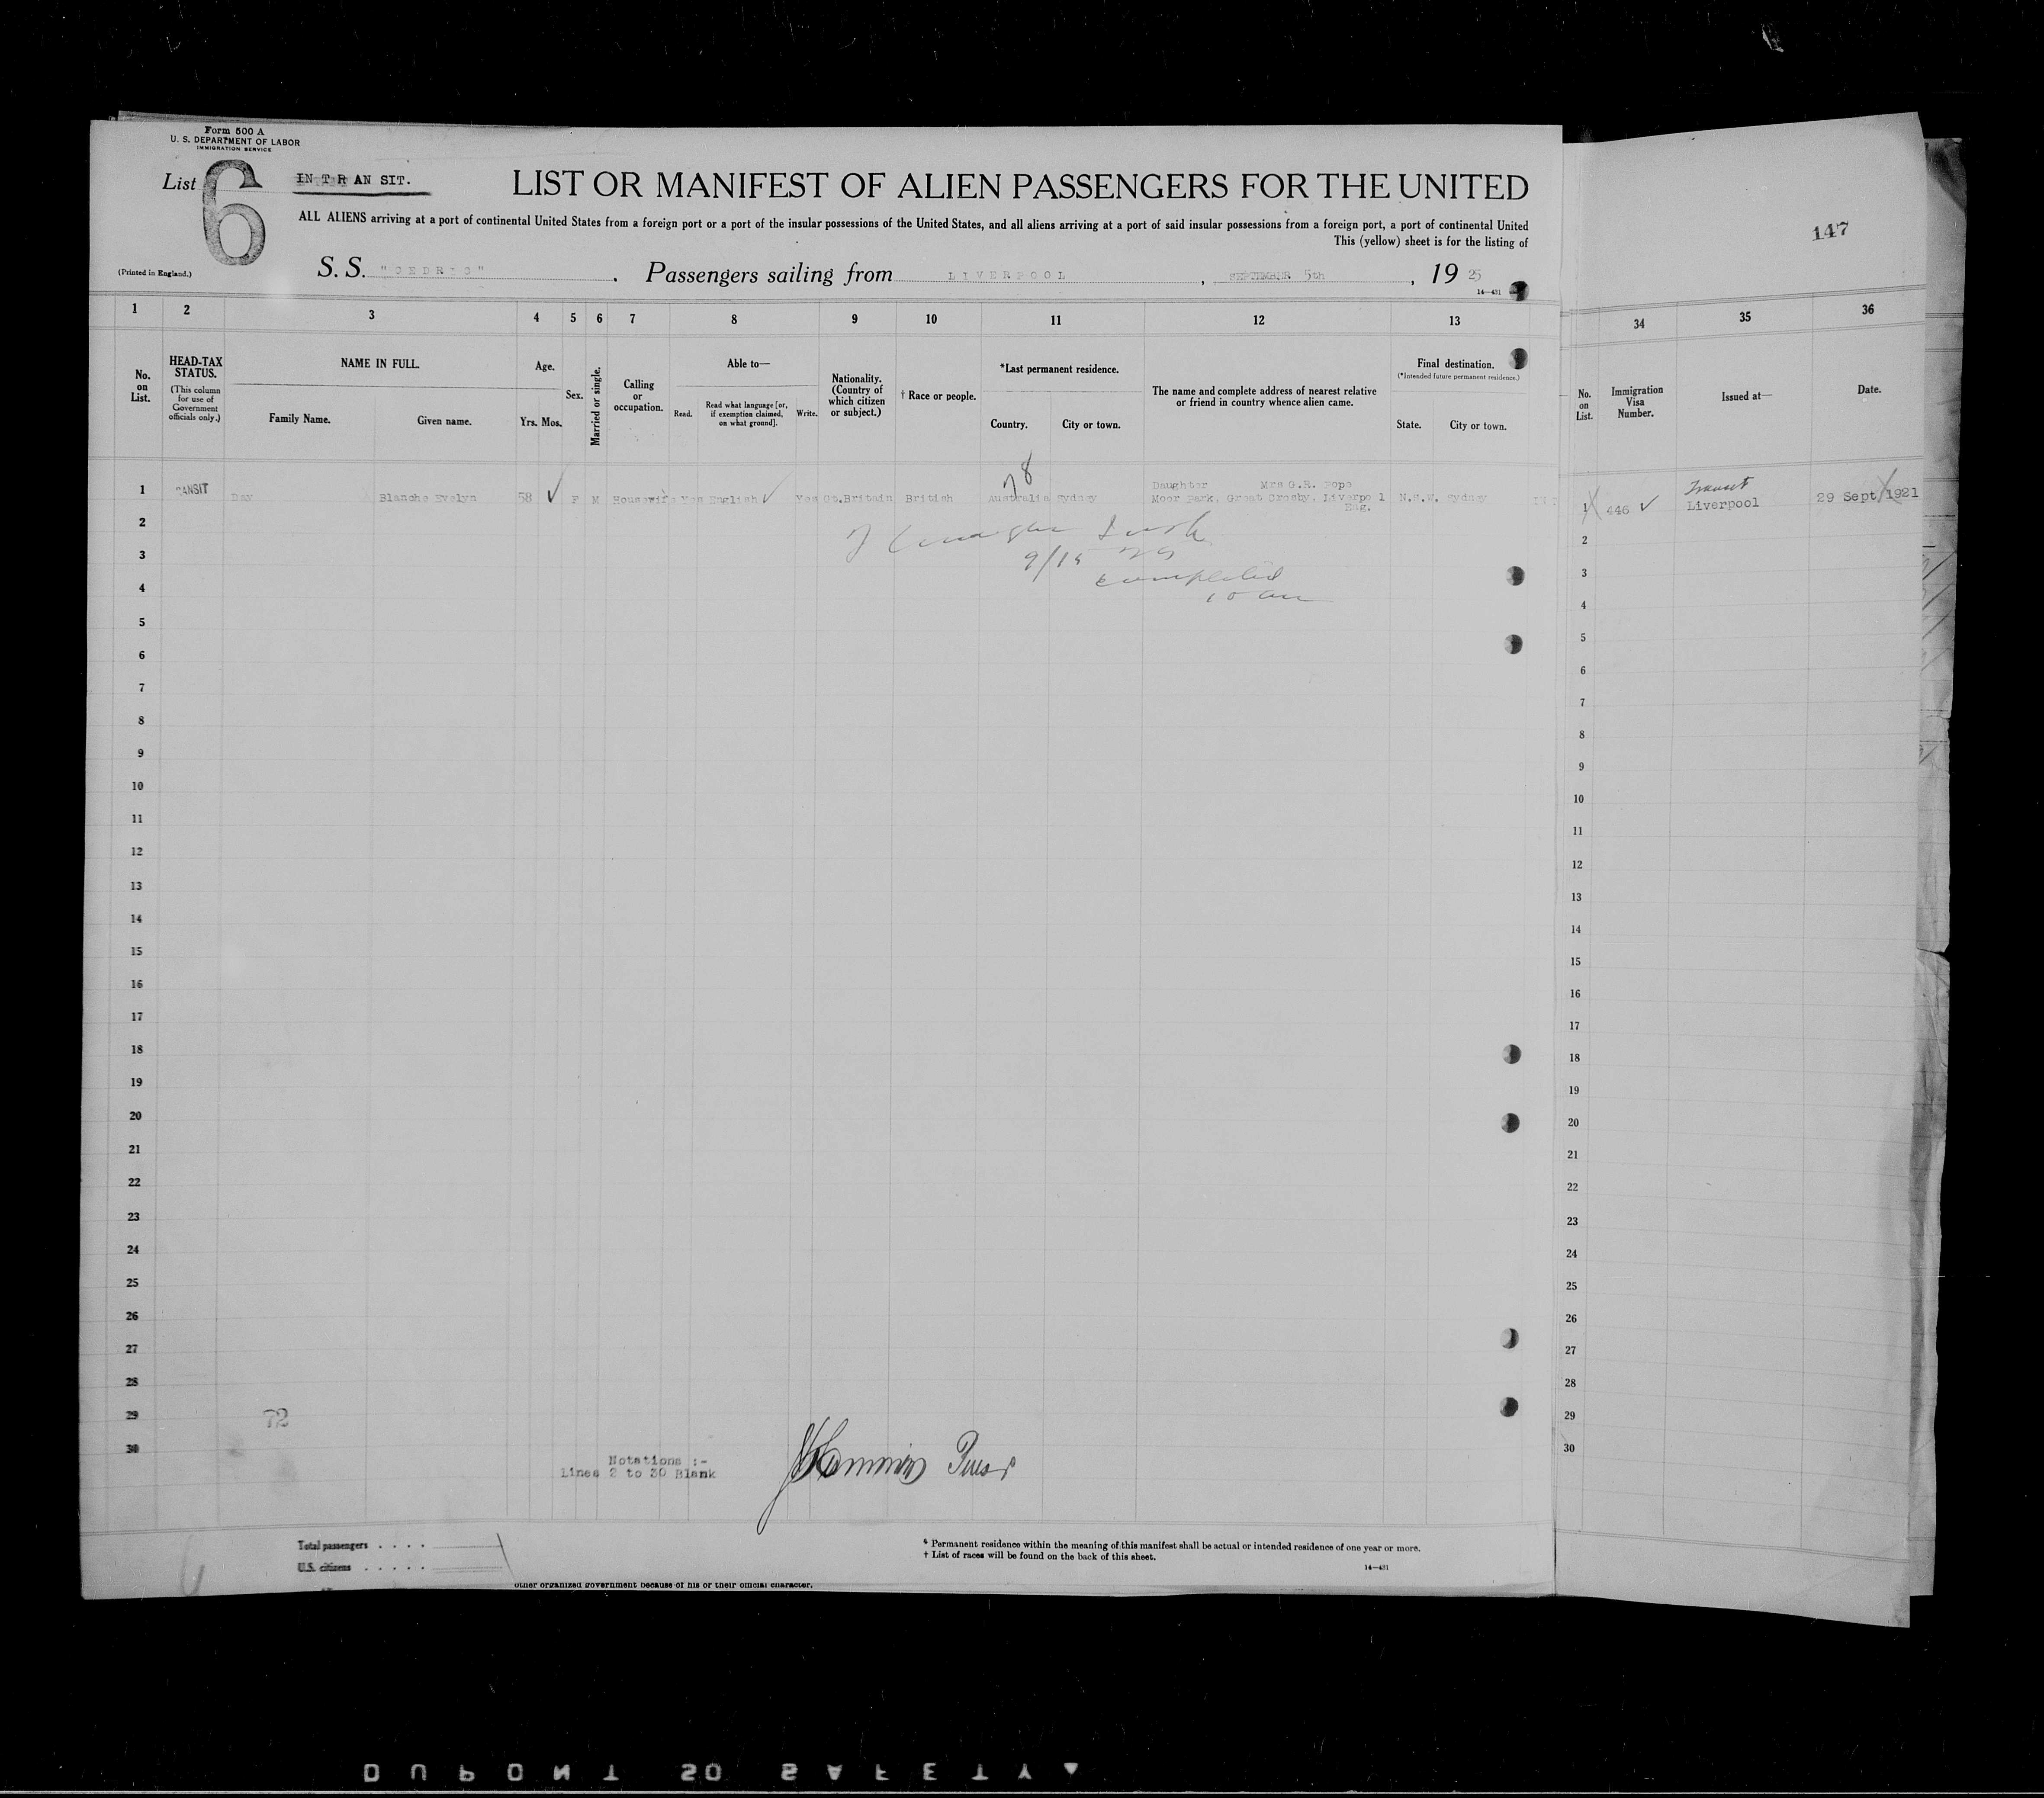 Form 500 A
U. S. DEPARTMENT OF LABOR
IMMIGRATION SERVICE
List 6
IN TRANSIT.
LIST OR MANIFEST OF ALIEN PASSENGERS FOR THE UNITED
ALL ALIENS arriving at a port of continental United States from a foreign port or a port of the insular possessions of the United States, and all aliens arriving at a port of said insular possessions from a foreign port, a port of continental United
This (yellow) sheet is for the listing of
147
(Printed in England.)
S. S. "CEDRIC" . Passengers sailing from LIVERPOOL , SEPTEMBER 5th , 19 25
14—431
1 2 3 4 5 6 7 8 9 10 11 12 13 34 35 36
No. on List.
HEAD-TAX STATUS.
(This column for use of Government officials only.)
NAME IN FULL.
Family Name. Given name.
Age.
Yrs. Mos.
Sex.
Married or single.
Calling or occupation.
Able to—
Read. Read what language [or, if exemption claimed, on what ground]. Write.
Nationality. (Country of which citizen or subject.)
† Race or people.
*Last permanent residence.
Country. City or town.
The name and complete address of nearest relative or friend in country whence alien came.
Final destination.
(*Intended future permanent residence.)
State. City or town.
No. on List.
Immigration Visa Number.
Issued at—
Date.
78
Daughter Mrs G.R. Pope
1 ANSIT Day Blanche Evelyn 58 ✓ F M Housewife Yes English ✓ Yes Gt.Britain British Australia Sydney Moor Park, Great Crosby, Liverpo l N.S.W. Sydney
Eng.
Transit
1 446 ✓ Liverpool 29 Sept 1921
2
3
9/15
4
completed
5
6
7
8
9
10
11
12
13
14
15
16
17
18
19
20
21
22
23
24
25
26
27
28
29
30
2
3
4
5
6
7
8
9
10
11
12
13
14
15
16
17
18
19
20
21
22
23
24
25
26
27
28
29
30
72
Notations :-
Lines 2 to 30 Blank
Purser
Total passengers . . . .
U.S. citizens . . . . .
* Permanent residence within the meaning of this manifest shall be actual or intended residence of one year or more.
† List of races will be found on the back of this sheet.
14—431
other organized government because of his or their official character.
DUPONT SO SAFETY